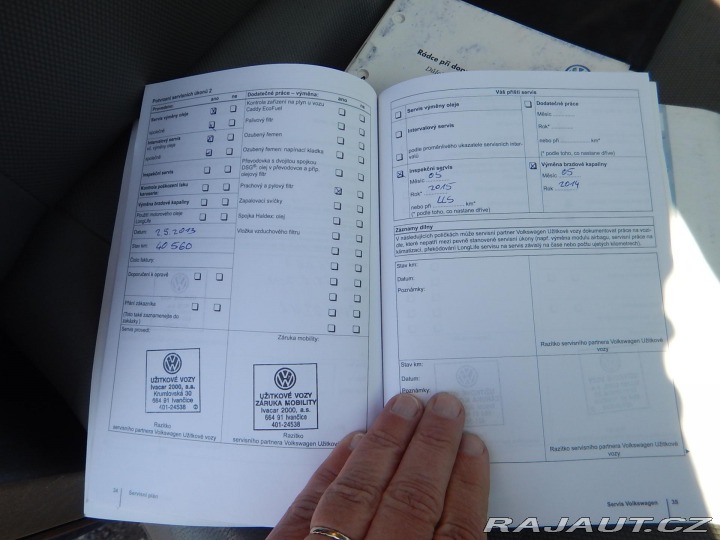 Rádce při
Potvrzení servisních úkonů 2
Provedeno: ano ne
Servis výměny oleje
Intervalový servis
Inspekční servis
Kontrola poškození laku
karoserie:
Výměna brzdové kapaliny
Použití motorového oleje
LongLife
Datum: 2.5.2013
Stav km: 40 560
Číslo faktury:
Doporučení k opravě
Přání zákazníka:
(Toto také zaznamenejte do
zakázky.)
Servis provedl:
UŽITKOVÉ VOZY
Ivacar 2000, a.s.
Krumlovská 30
664 91 Ivančice
401-24538
Razítko
servisního partnera Volkswagen Užitkové vozy
Dodatečné práce – výměna: ano ne
Kontrola zařízení na plyn u vozu
Caddy EcoFuel
Palivový filtr
Ozubený řemen
Ozubený řemen: napínací kladka
Převodovka s dvojitou spojkou
DSG®: olej v převodovce a příp.
olejový filtr
Prachový a pylový filtr
Zapalovací svíčky
Spojka Haldex: olej
Vložka vzduchového filtru
Záruka mobility:
UŽITKOVÉ VOZY
ZÁRUKA MOBILITY
Ivacar 2000, a.s.
664 91 Ivančice
401-24538
Razítko
servisního partnera Volkswagen Užitkové
38 Servisní plán
Váš příští servis
Servis výměny oleje
Intervalový servis
podle proměnlivého ukazatele servisních inter-
valů
Inspekční servis
Měsíc: 05
Rok* 2015
nebo při km*
(* podle toho, co nastane dříve)
Dodatečné práce
Měsíc:
Rok*
nebo při km*
(* podle toho, co nastane dříve)
Výměna brzdové kapaliny
Měsíc: 05
Rok: 2014
Záznamy dílny
V následujících políčkách může servisní partner Volkswagen Užitkové vozy dokumentovat práce na vozi-
dle, které nepatří mezi pevně stanovené servisní úkony (např. výměna modulu airbagu, servisní práce na
klimatizaci, překódování LongLife servisu na servis závislý na čase nebo počtu ujetých kilometrech).
Stav km:
Datum:
Poznámky:
Razítko servisního partnera Volkswagen Užitkové
vozy
Stav km:
Datum:
Poznámky:
Razítko servisního partnera Volkswagen Užitkové
vozy
Servis Volkswagen 39
RAJAUT.CZ